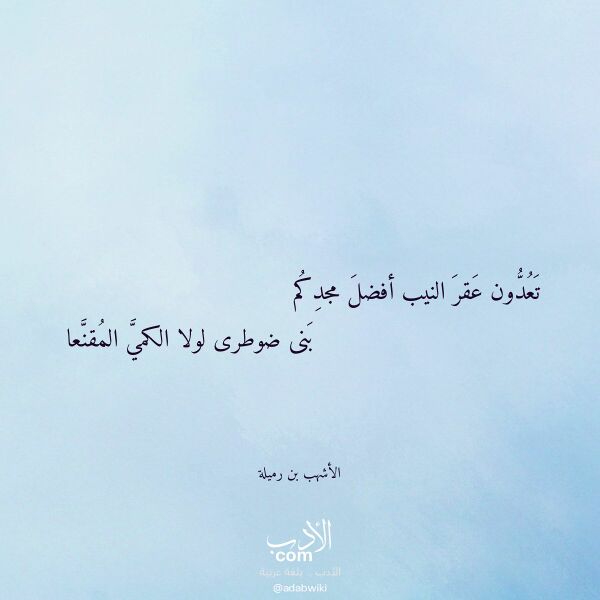 تَعُدُّون عَقرَ النيب أفضلَ مجدِكُم
بَنى ضوطرى لولا الكميَّ المُقنَّعا
الأشهب بن رميلة
الأدب
com
الأدب .. بلغة عربية
@adabwiki